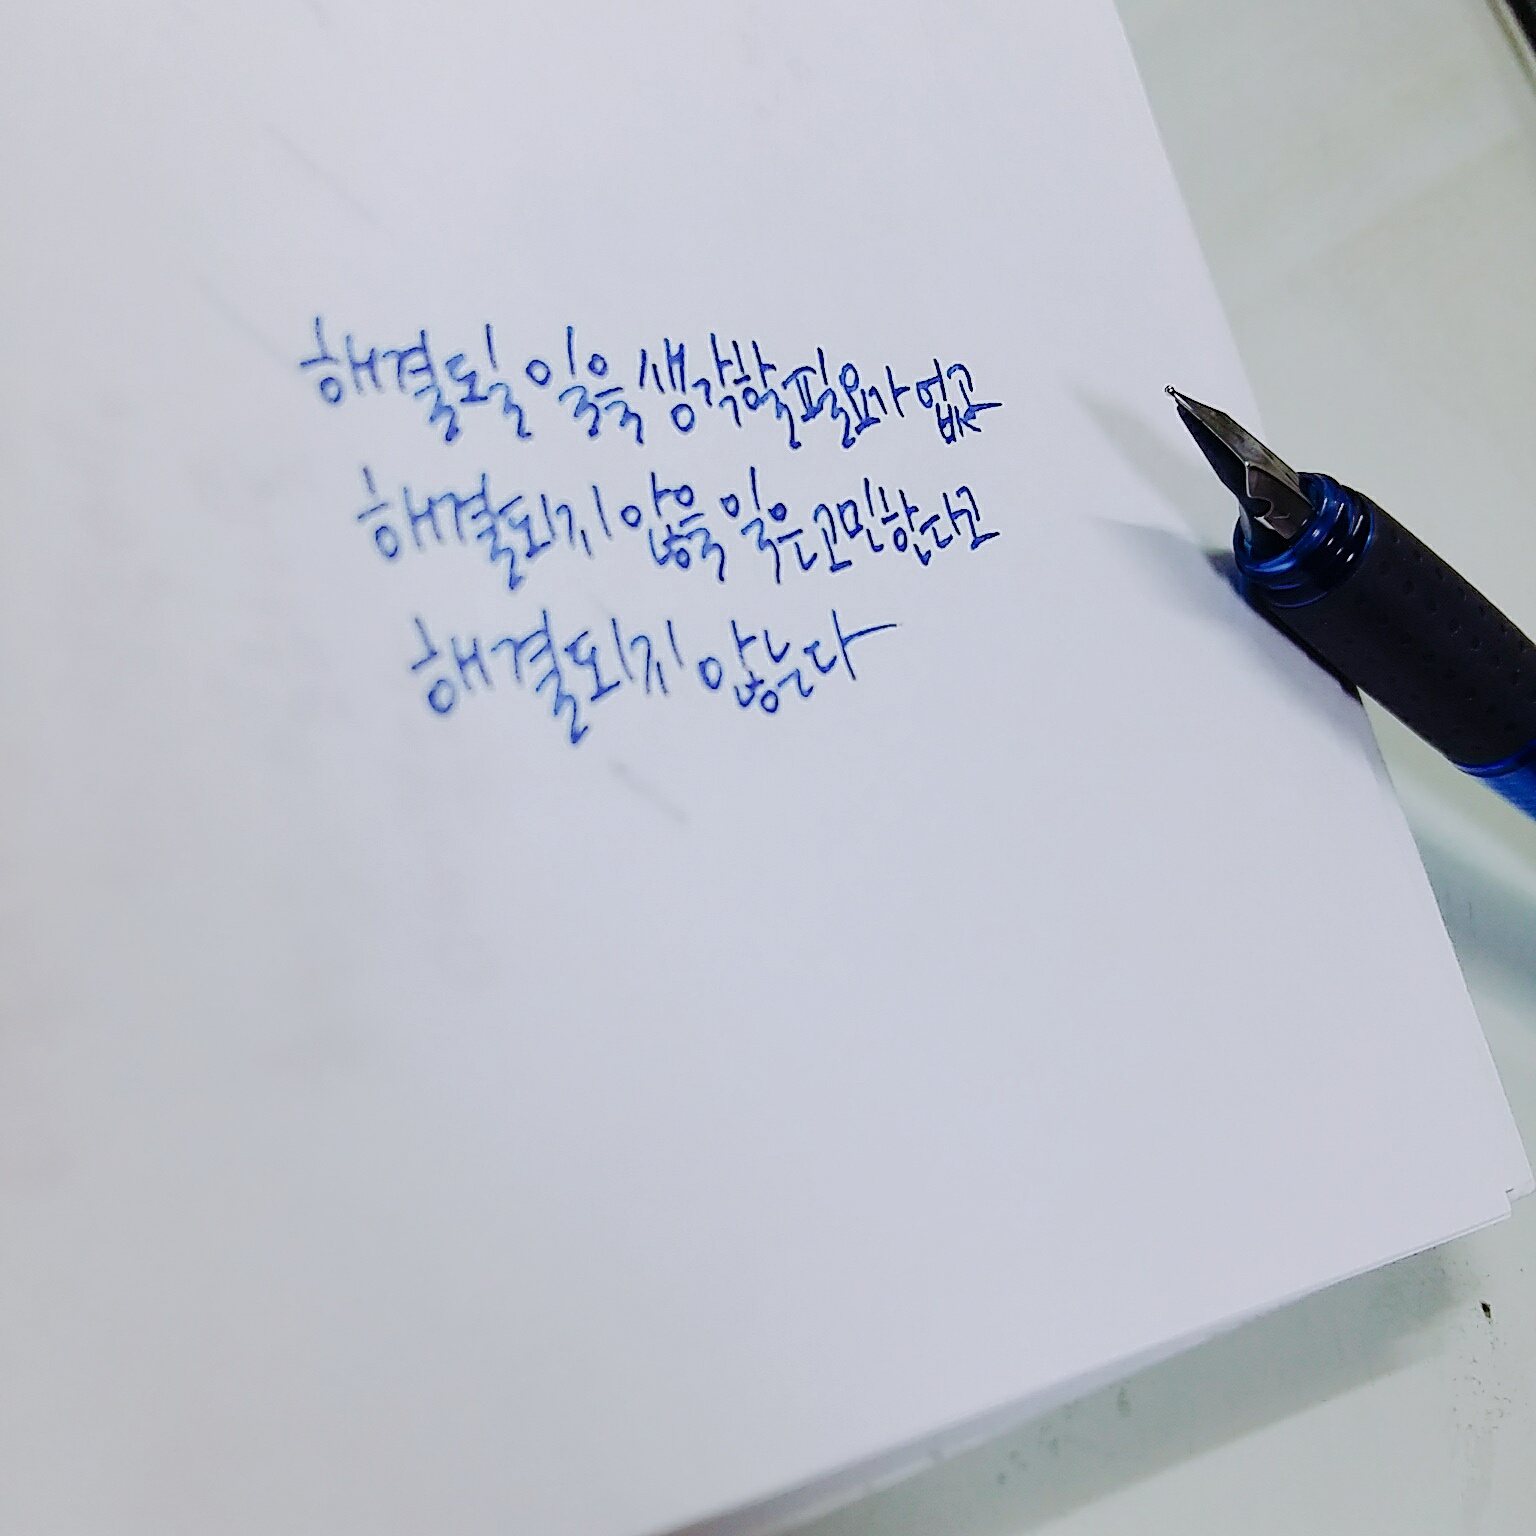 해결될 일을 생각할 필요가 없고
해결되지 않을 일은 고민한다고
해결되지 않는다